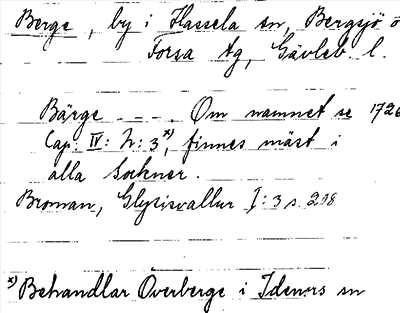 Berge, by i Hassela sn, Bergsjö o
Forsa tg, Gävleb. l.
Bärge - - - . Om namnet se 1726
Cap: IV: N: 3 x), finnes mäst i
alla Sochner.
Broman, Glysisvallur I: 3 s. 298
x) Behandlar Överberge i Idenors sn